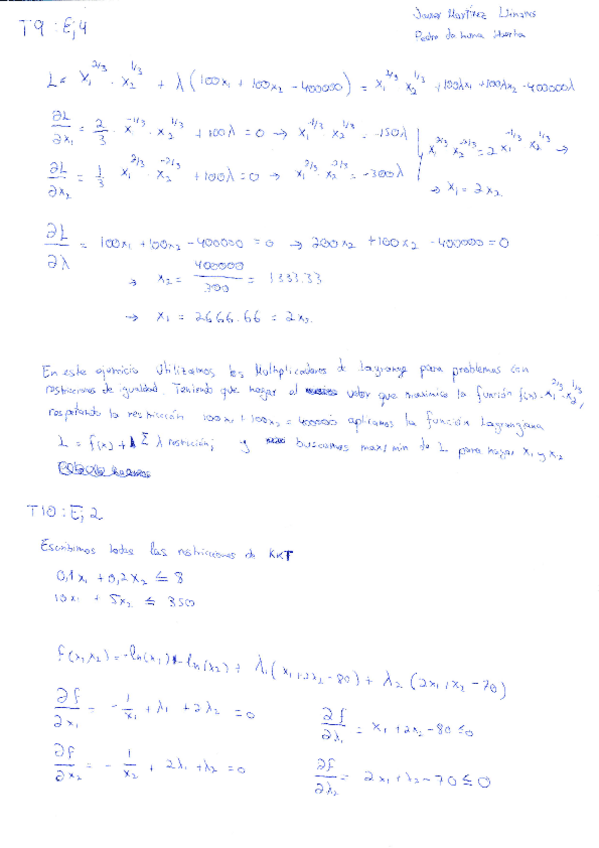 T9 : Ej 4
Javier Martínez Llinares
Pedro de Luna Huerta
L = x₁^2/3 · x₂^1/3 + λ (100x₁ + 100x₂ - 400000) = x₁^2/3 x₂^1/3 + 100λx₁ + 100λx₂ - 400000λ
∂L/∂x₁ = 2/3 · x₁^-1/3 · x₂^1/3 + 100λ = 0 → x₁^-1/3 x₂^1/3 = -150λ
∂L/∂x₂ = 1/3 x₁^2/3 · x₂^-2/3 + 100λ = 0 → x₁^2/3 · x₂^-2/3 = -300λ
x₁^2/3 x₂^-2/3 = 2 x₁^-1/3 x₂^1/3 →
→ x₁ = 2x₂.
∂L/∂λ = 100x₁ + 100x₂ - 400000 = 0 → 200x₂ + 100x₂ - 400000 = 0
→ x₂ = 400000/300 = 1333.33
→ x₁ = 2666.66 = 2x₂.
En este ejercicio utilizamos los Multiplicadores de Lagrange para problemas con
restricciones de igualdad. Teniendo que hayar el valor que maximice la función f(x) = x₁^2/3 · x₂^1/3,
respetando la restricción 100x₁ + 100x₂ = 400000 aplicamos la función Lagranzana
L = f(x) + Σ λ restricción; y buscamos max/min de L para hayar x₁ y x₂
T10 : Ej 2
Escribimos todas las restricciones de KKT
0,1x₁ + 0,2x₂ ≤ 8
10x₁ + 5x₂ ≤ 350
f(x₁,x₂) = -ln(x₁) - ln(x₂) + λ₁(x₁+2x₂-80) + λ₂(2x₁+x₂-70)
∂f/∂x₁ = -1/x₁ + λ₁ + 2λ₂ = 0
∂f/∂λ₁ = x₁ + 2x₂ - 80 ≤ 0
∂f/∂x₂ = -1/x₂ + 2λ₁ + λ₂ = 0
∂f/∂λ₂ = 2x₁ + x₂ - 70 ≤ 0